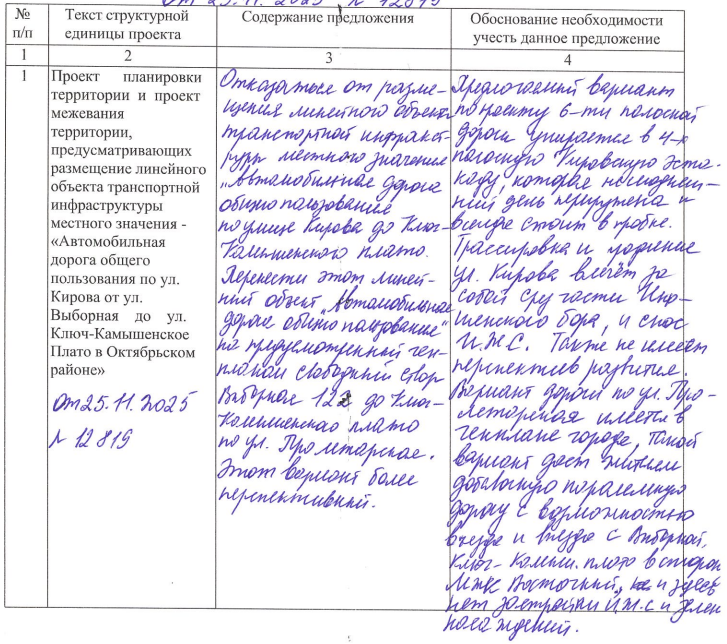 от 25.11.2025 № 12819
№ п/п
Текст структурной единицы проекта
Содержание предложения
Обоснование необходимости учесть данное предложение
1
2
3
4
1
Проект планировки
территории и проект
межевания
территории,
предусматривающих
размещение линейного
объекта транспортной
инфраструктуры
местного значения -
«Автомобильная
дорога общего
пользования по ул.
Кирова от ул.
Выборная до ул.
Ключ-Камышенское
Плато в Октябрьском
районе»
от 25.11.2025
№ 12819
Отказаться от разме-
щения линейного объекта
транспортной инфраст-
руктуры местного значения
„Автомобильная дорога
общего пользования
по улице Кирова до Ключ-
Камышенского плато.
Перенести этот линей-
ный объект „Автомобильная
дорога общего пользования"
по предусмотренный ген-
планом свободный створ
Выборная 122 до Ключ-
Камышенского плато
по ул. Пролетарская.
Этот вариант более
перспективный.
Предлогаемый вариант
по проекту 6-ти полосной
дороги упирается в 4-х
полосную Кировскую эста-
каду, которая на сегодняш-
ний день перегружена и
всегда стоит в пробке.
Трассировка и
ул. Кирова влечёт за
собой части Ини-
шенского бора, и снос
И.Ж.С. Также не имеет
перспектив развития.
Вариант дороги по ул. Про-
летарская имеется в
генплане города, такой
вариант даст жителям
параллельную
дорогу с возможностью
въезда и выезда с Выборной,
Ключ-Камыш. плато в сторону
МЖК Восточный, и здесь
нет застройки И.Ж.С и зелен
насаждений.